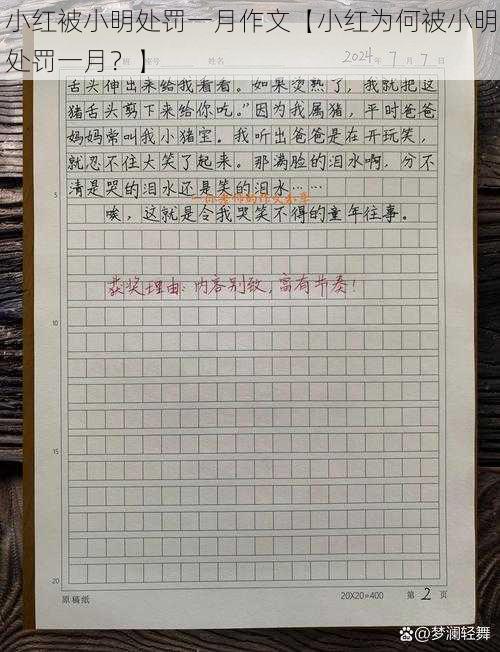 小红被小明处罚一月作文【小红为何被小明
处罚一月？】
班 姓名 2024年7月7日
舌头伸出来给我看看。如果烫熟了，我就把这
猪舌头剪下来给你吃。”因为我属猪，平时爸爸
妈妈常叫我小猪宝。我听出爸爸是在开玩笑，
就忍不住大笑了起来。那满脸的泪水啊，分不
清是哭的泪水还是笑的泪水……
唉，这就是令我哭笑不得的童年往事。
获奖理由：内容别致，富有节奏！
5
10
15
20
原稿纸 20X20=400 第2页
百家号@梦澜轻舞